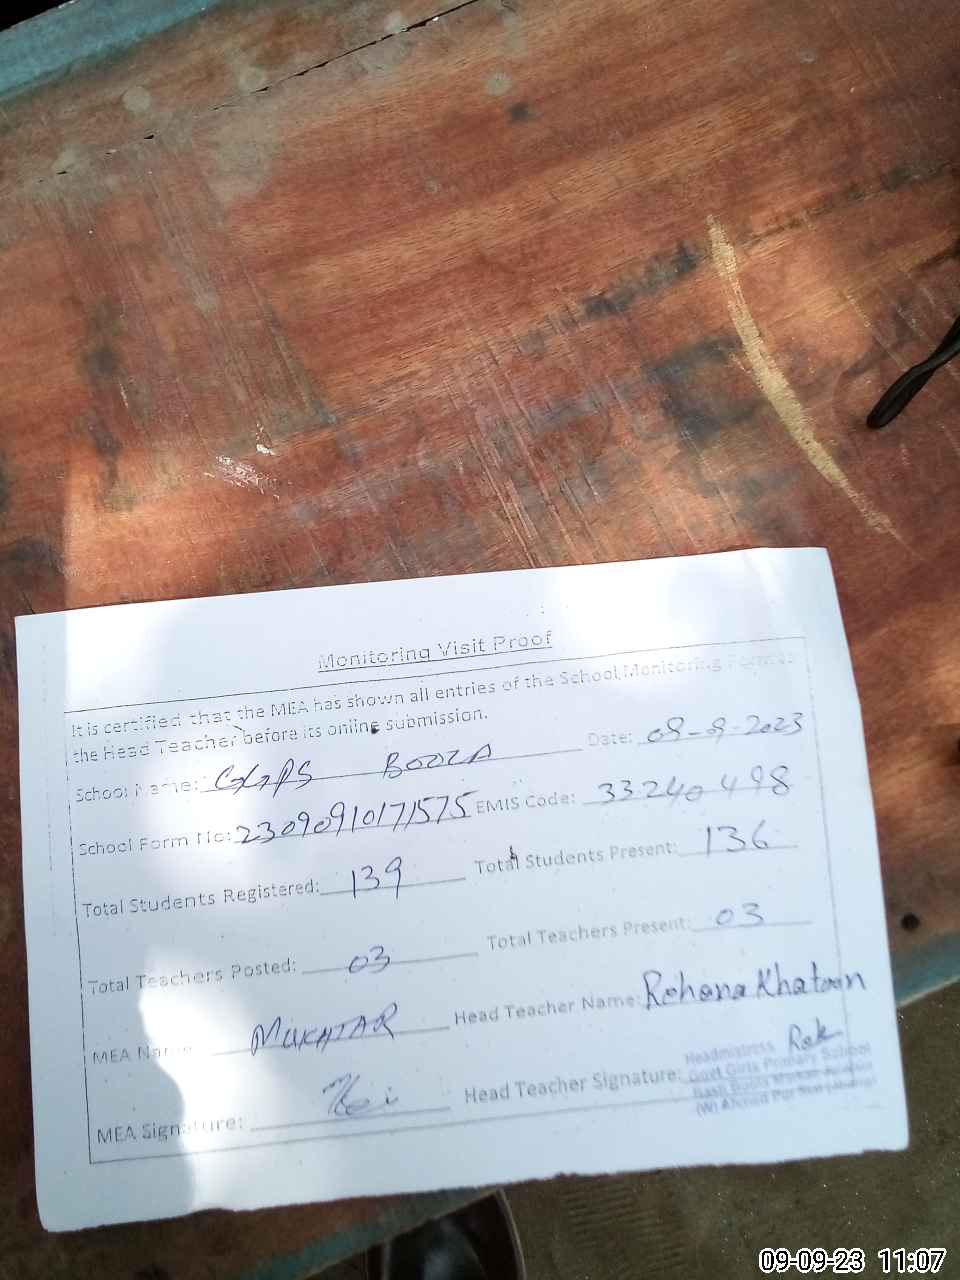 Monitoring Visit Proof
It is certified that the MEA has shown all entries of the School Monitoring Form to
the Head Teacher before its online submission.
School Name: GGPS BOOZA Date: 08-9-2023
School Form No: 2309091017 1575 EMIS Code: 33240498
Total Students Registered: 139 Total Students Present: 136
Total Teachers Posted: 03 Total Teachers Present: 03
MEA Name: MUKHTAR Head Teacher Name: Rehana Khatoon
MEA Signature: Head Teacher Signature:
Headmistress
Govt Girls Primary School
(W) Ahmed Pur
09-09-23 11:07